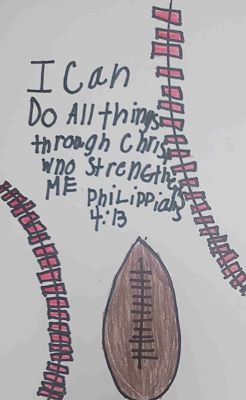 I Can
Do All things
through Christ
who Strengthens
ME Philippians
4:13